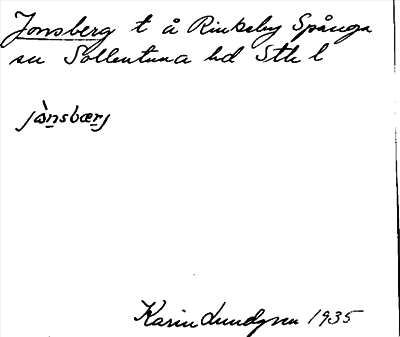 Jonsberg t å Rinkeby Spånga
sn Sollentuna hd Sth l
jònsbærj
Karin Lundgren 1935